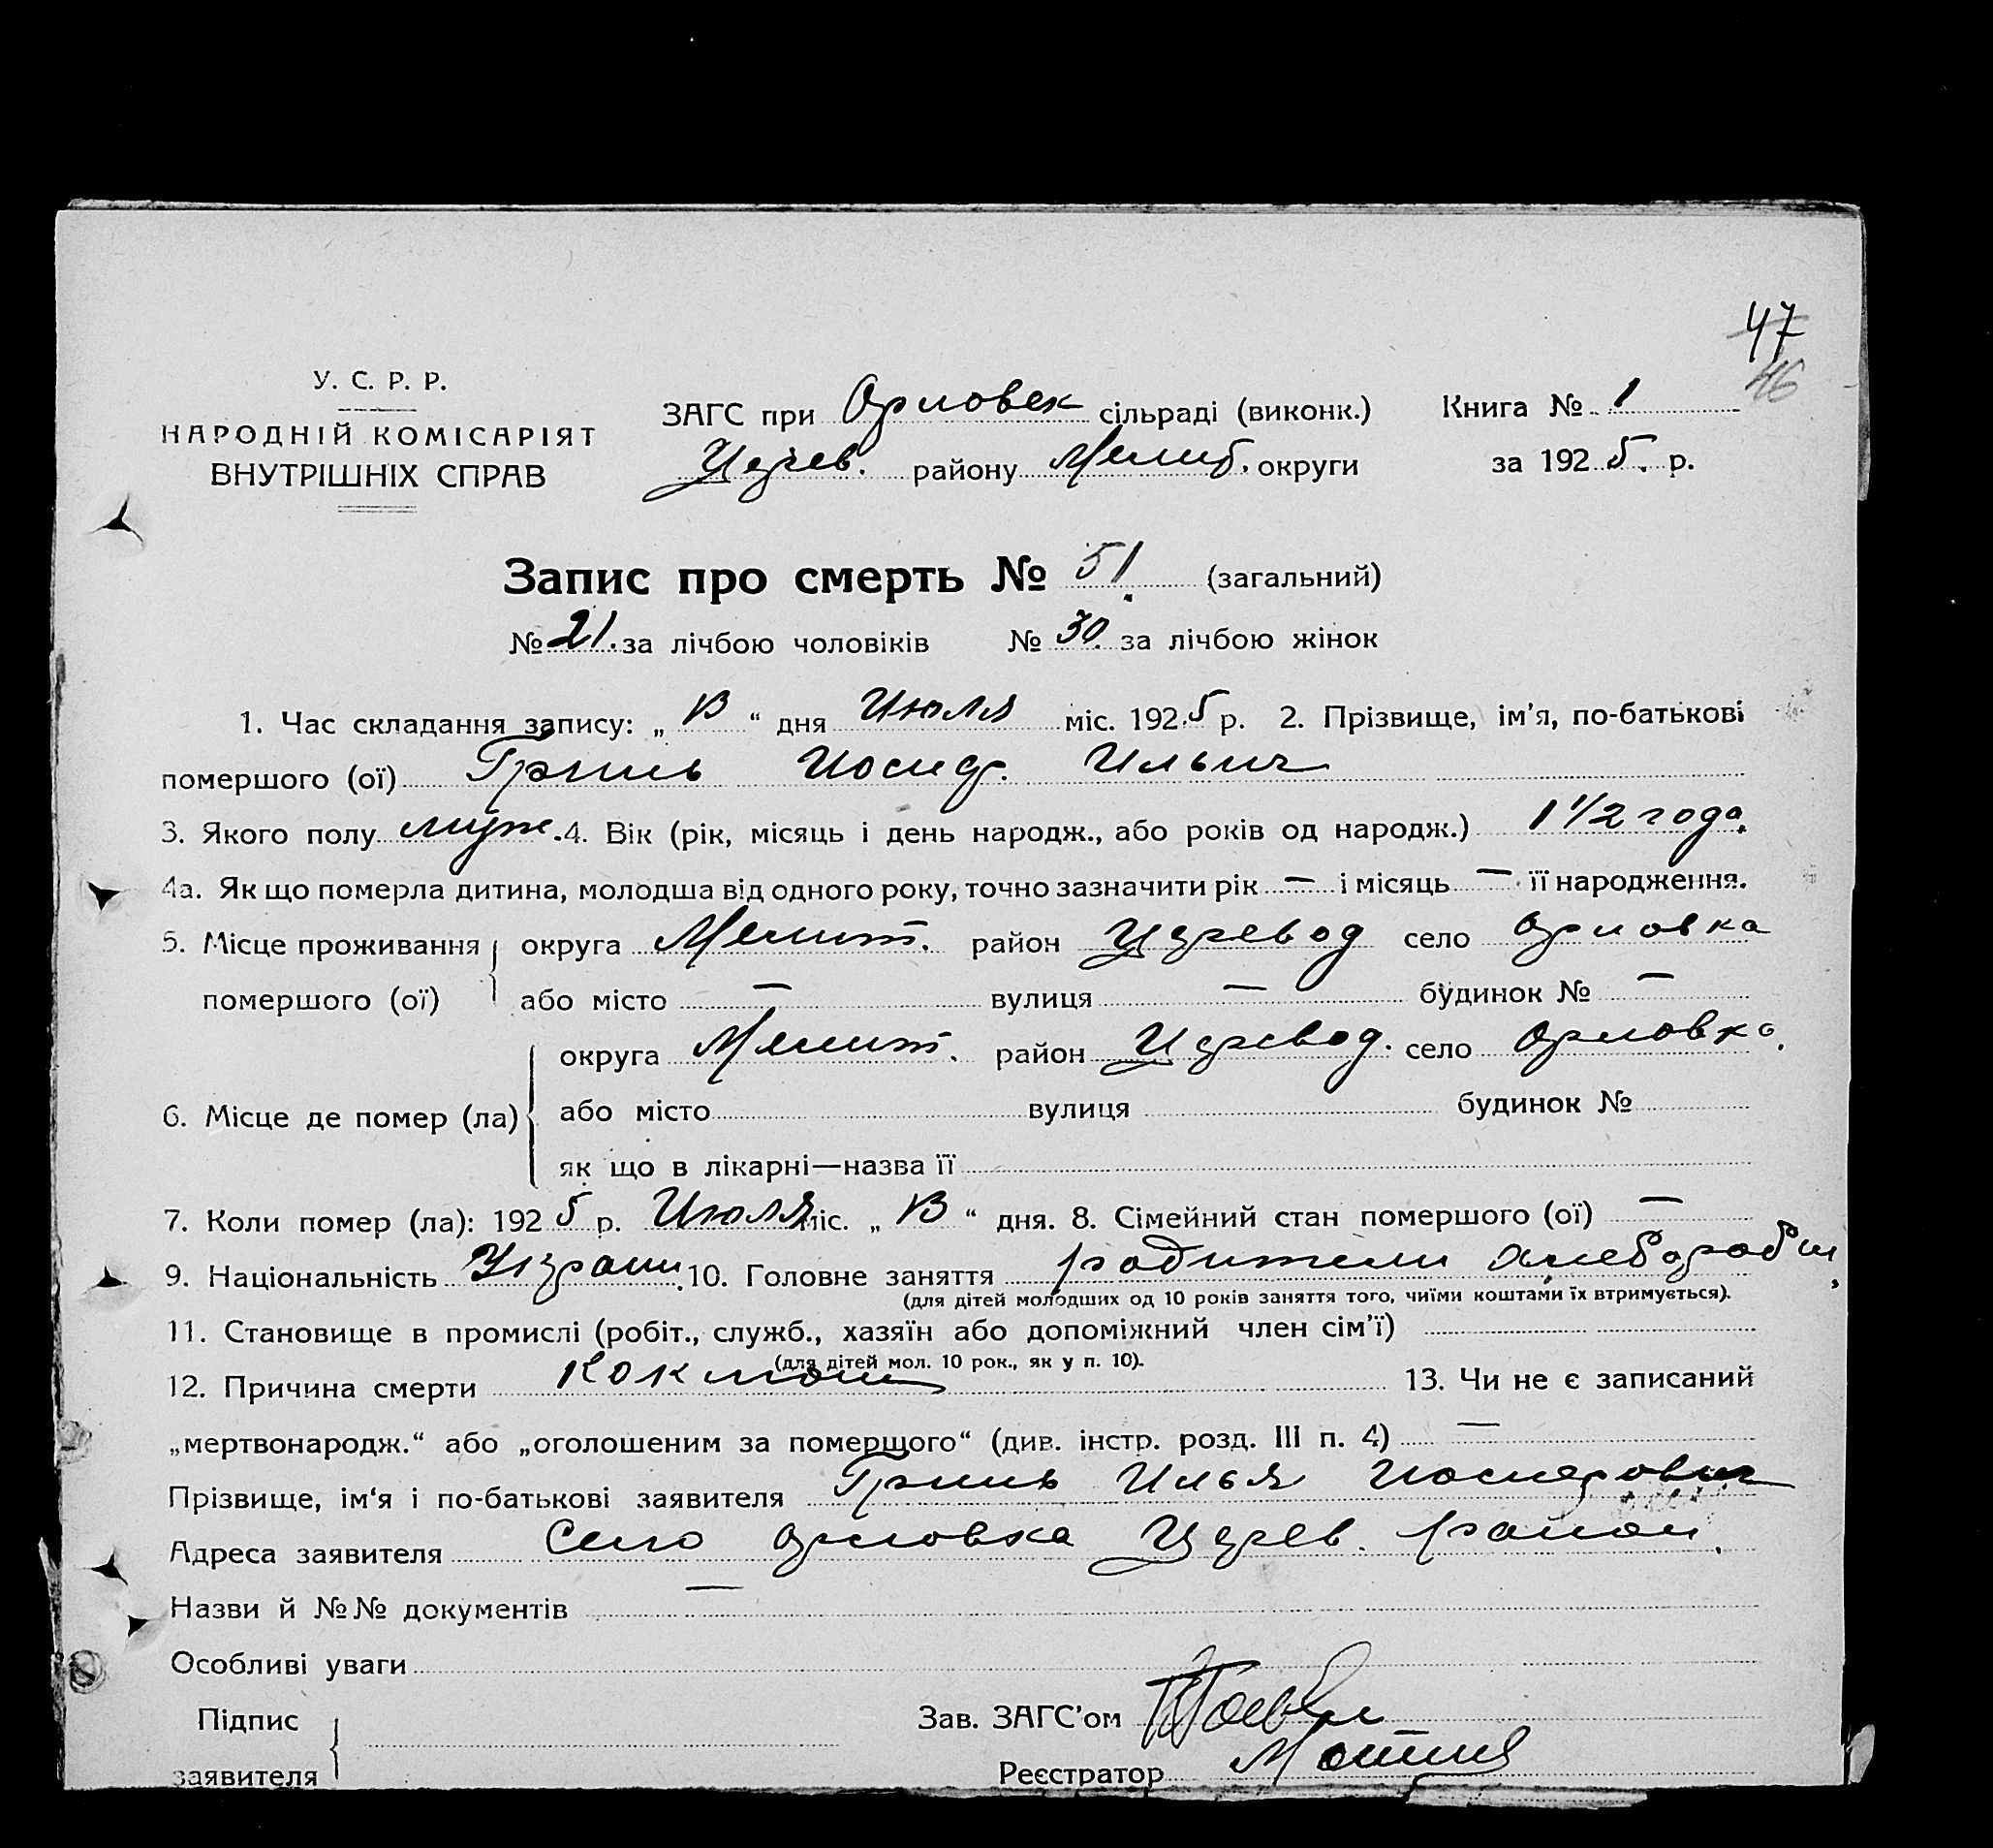 47
46
У. С. Р. Р.
НАРОДНІЙ КОМІСАРІЯТ
ВНУТРІШНІХ СПРАВ
ЗАГС при Орловск сільраді (виконк.) Книга № 1
Царев. району Мелит. округи за 1925. р.
Запис про смерть № 51. (загальний)
№ 21. за лічбою чоловіків № 30. за лічбою жінок
1. Час складання запису: „ 13 “ дня Июля міс. 1925 р. 2. Прізвище, ім'я, по-батькові
помершого (ої) Гринь Иосиф. Ильич
3. Якого полу муж. 4. Вік (рік, місяць і день народж., або років од народж.) 1 1/2 года.
4а. Як що померла дитина, молодша від одного року, точно зазначити рік — і місяць — її народження.
5. Місце проживання округа Мелит. район Царевод село Орловка
помершого (ої) або місто — вулиця — будинок № —
округа Мелит. район Царевод. село Орловка.
6. Місце де помер (ла) або місто вулиця будинок №
як що в лікарні—назва її
7. Коли помер (ла): 1925 р. Июля міс. „ 13 “ дня. 8. Сімейний стан помершого (ої) —
9. Національність Украин. 10. Головне заняття родители хлебороби
(для дітей молодших од 10 років заняття того, чиїми коштами їх втримується).
11. Становище в промислі (робіт., служб., хазяїн або допоміжний член сім'ї)
(для дітей мол. 10 рок., як у п. 10).
12. Причина смерти Коклюш 13. Чи не є записаний
„мертвонародж.“ або „оголошеним за померщого“ (див. інстр. розд. III п. 4) —
Прізвище, ім‘я і по-батькові заявителя Гринь Илья Иосифович
Адреса заявителя Село Орловка Царев. район.
Назви й №№ документів —
Особливі уваги
Підпис
Зав. ЗАГС'ом
заявителя
Реєстратор